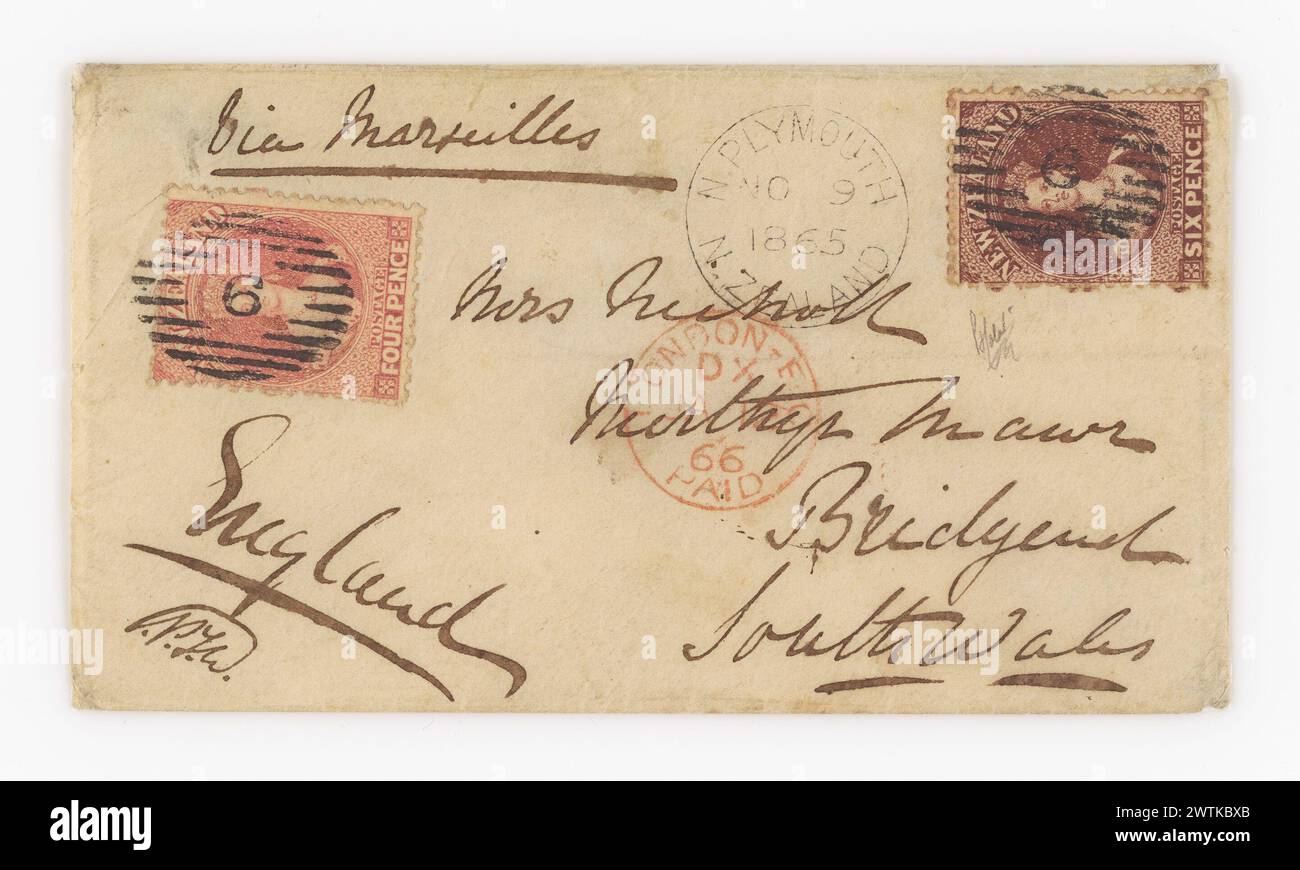 Via Marseilles
N. PLYMOUTH
NO 9
1865
N. ZEALAND
NEW ZEALAND
POSTAGE
SIX PENCE
6
ZEALAND
POSTAGE
FOUR PENCE
6
Mrs Nicholl
LONDON E.C
66
PAID
Merthyr Mawr
Bridgend
South Wales
England
alamy
Image ID: 2WTKBXB
www.alamy.com